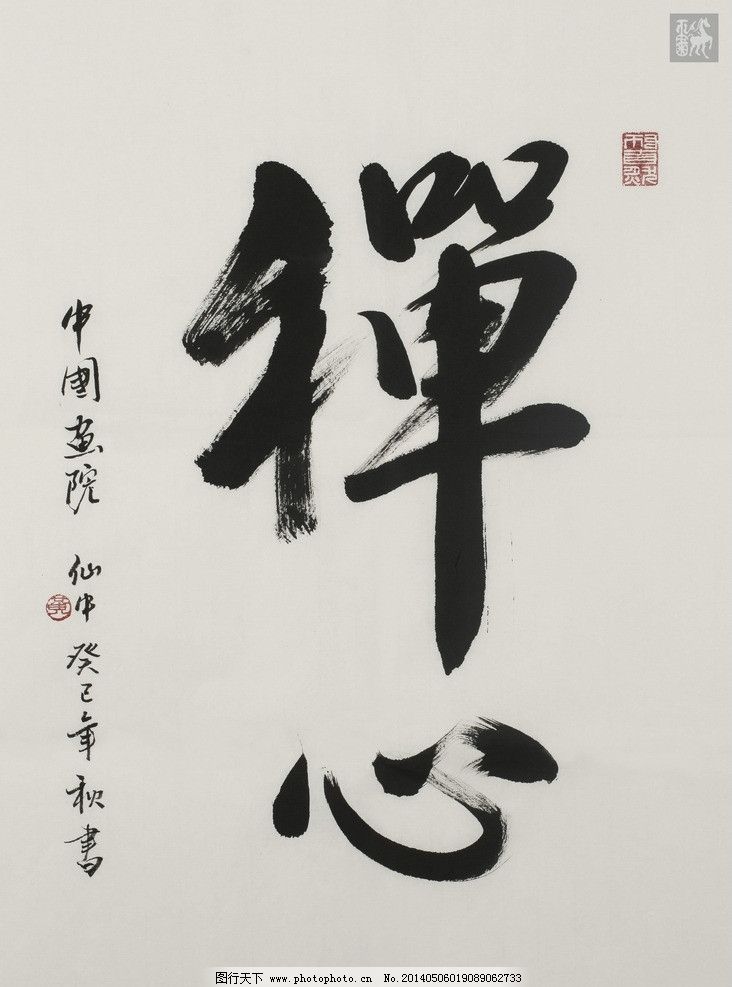 禪心
中國畫院 仙中 癸巳年秋書
图行天下 www.photophoto.cn No.20140506019089062733